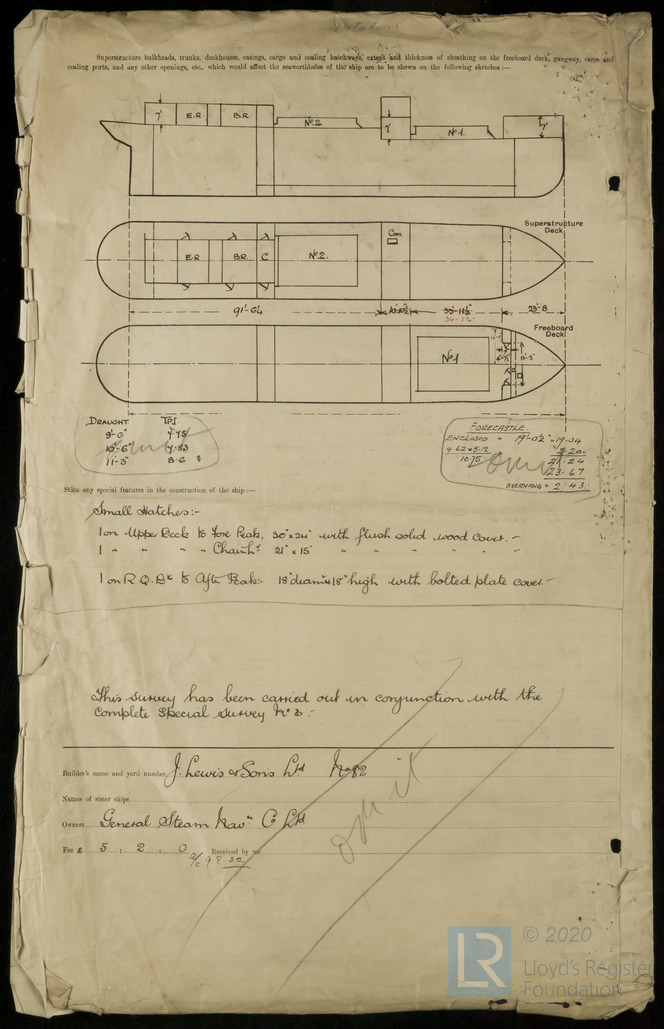 Superstructure bulkheads, trunks, deckhouses, casings, cargo and coaling hatchways, extent and thickness of sheathing on the freeboard deck, gangway, cargo and
coaling ports, and any other openings, etc., which would affect the seaworthiness of the ship are to be shewn on the following sketches :—
7' E.R. B.R. No.2 7' No.1. 7'
Superstructure
Deck.
Con
E.R B.R. C No.2.
91'-6¼ 10'-10½ 23'-8
Freeboard
Deck
No.1
DRAUGHT. TPI.
9'-6"
10'-6"
11'-3"
omit
FORECASTLE.
ENCLOSED =
10.75
23.67
OVERHANG = 2.43
omit
State any special features in the construction of the ship :—
Small Hatches:-
1 on Upper Deck to Fore Peak, 30" x 24" with flush solid wood cover.
1 " " " " Chain Lr 21" x 15" " " " " "
1 on R.Q.Dk to After Peak:- 18" diam x 18" high with bolted plate cover
This survey has been carried out in conjunction with the
Complete Special Survey No 3:-
Builder's name and yard number J. Lewis & Sons Ltd No 82
Names of sister ships
Owners General Steam Navn Co Ltd
Fee £ 5 : 2 : 0 Received by me
omit
LR © 2020
Lloyd's Register
Foundation